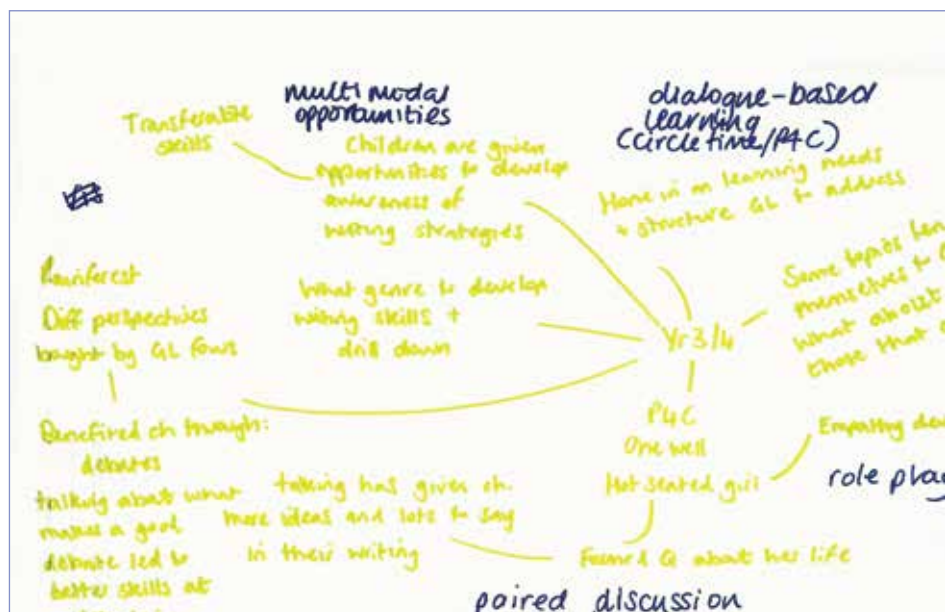 multimodal
opportunities
dialogue-based
learning
(circletime/P4C)
Transferable
skills
Children are given
opportunities to develop
awareness of
writing strategies
Home in on learning needs
+ structure GL to address
Rainforest
Diff perspectives
bought by GL focus
What genre to develop
writing skills +
drill down
Yr 3/4
Some topics
themselves to
what about
those that
Benefited ch through:
debates
talking about what
makes a good
debate led to
better skills at
talking has given ch.
more ideas and lots to say
in their writing
P4C
One well
Hot seated girl
Empathy
role play
Formed Q about her life
paired discussion